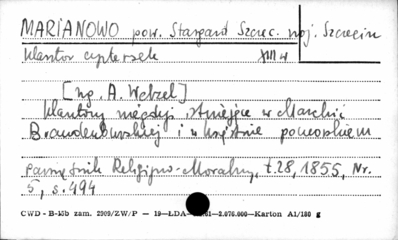 MARIANOWO pow. Stargard Szczec. woj. Szczecin
klasztor cysterek XIII w
[wg. A. Wetzel]
klasztory niegdyś istniejące w Marchii
Brandenburskiej i w księstwie pomorskiem
Pamiętnik Religijno-Moralny, t.28, 1855, Nr.
5, s.494
CWD - B-15b zam. 2909/ZW/P — 19—LDA— 2.076.000—Karton A1/180 g